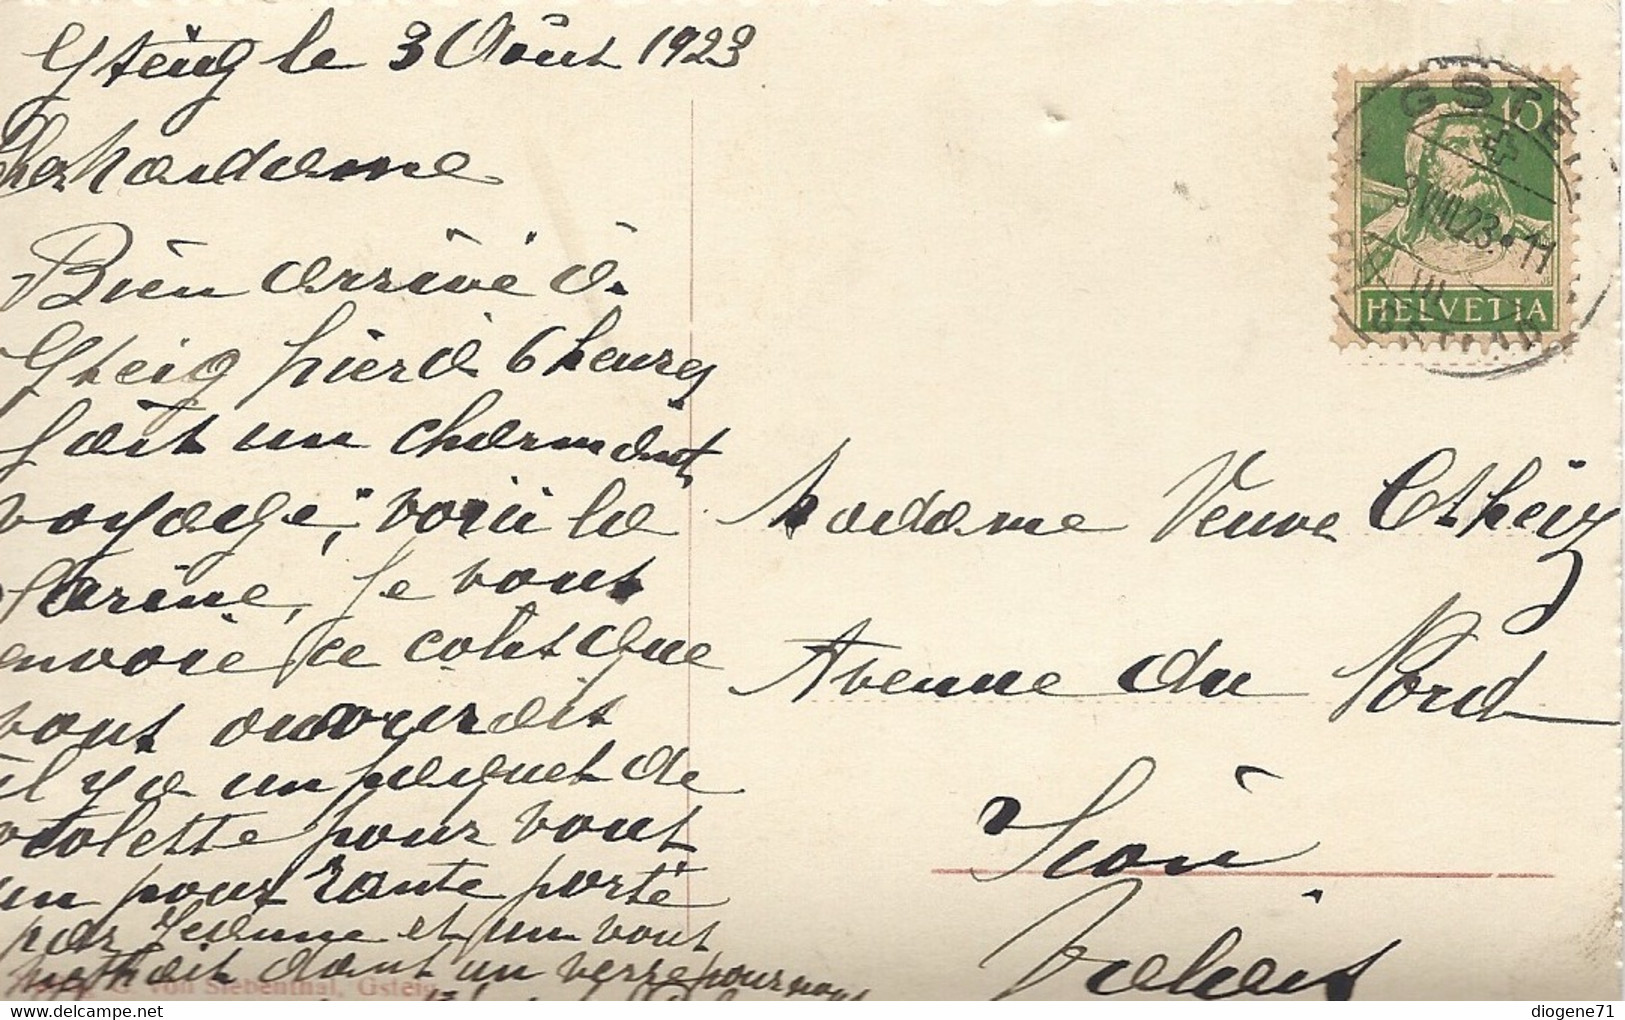 Gsteig le 3 Août 1923
Cher Madame
Bien arrivé à
Gsteig hier à 6 heures
fait un charmant
voyage, voici la
farine, je vous
envoie ce colis que
vous ouvrir dit
il y a un paquet de
violette pour vous
un pour tante porté
par Jeanne et un vous
dans un verre pour nous
von Siebenthal, Gsteig
GSTEIG
3.VIII.23.-11
GSTAAD
15
HELVETIA
Madame Veuve
Avenue du Nord
Sion
Valais
diogene71